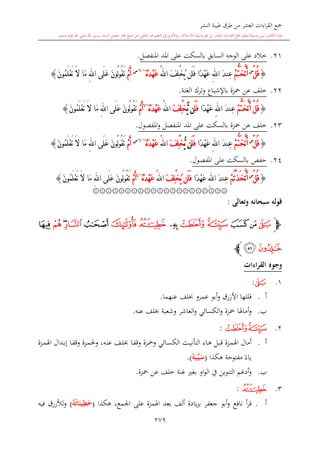 جمع القراءات العشر من طرق طيبة النشر
٢١. خلاد على الوجه السابق بالسكت على المد المنفصل.
﴿ قُلْ أَتَّخَذْتُمْ عِندَ اللهِ عَهْدًا فَلَن يُخْلِفَ اللهُ عَهْدَهُ أَمْ تَقُولُونَ عَلَى اللهِ مَا لَا تَعْلَمُونَ ﴾
٢٢. خلف عن حمزة بالإشباع وترك الغنة.
﴿ قُلْ أَتَّخَذْتُمْ عِندَ اللهِ عَهْدًا فَلَن يُخْلِفَ اللهُ عَهْدَهُ أَمْ تَقُولُونَ عَلَى اللهِ مَا لَا تَعْلَمُونَ ﴾
٢٣. خلف عن حمزة بالسكت على المد المنفصل والمفصول.
﴿ قُلْ أَتَّخَذْتُمْ عِندَ اللهِ عَهْدًا فَلَن يُخْلِفَ اللهُ عَهْدَهُ أَمْ تَقُولُونَ عَلَى اللهِ مَا لَا تَعْلَمُونَ ﴾
٢٤. حفص بالسكت على المفصول.
﴿ قُلْ أَتَّخَذْتُمْ عِندَ اللهِ عَهْدًا فَلَن يُخْلِفَ اللهُ عَهْدَهُ أَمْ تَقُولُونَ عَلَى اللهِ مَا لَا تَعْلَمُونَ ﴾
قوله سبحانه وتعالى :
﴿ بَلَىٰ مَن كَسَبَ سَيِّئَةً وَأَحَٰطَتْ بِهِۦ خَطِيٓـَٔتُهُۥ فَأُوْلَٰٓئِكَ أَصْحَٰبُ ٱلنَّارِ هُمْ فِيهَا
خَٰلِدُونَ ٨١ ﴾
وجوه القراءات
١. بَلَىٰ:
أ . قللها الأزرق وأبو عمرو بخلف عنهما.
ب. وأمالها حمزة والكسائي والعاشر وشعبة بخلف عنه.
٢. سَيِّئَةً وَأَحَٰطَتْ :
أ . أمال الهمزة قبل هاء التأنيث الكسائي وحمزة وقفا بخلف عنه، ولحمزة وقفا إبدال الهمزة
ياءً مفتوحة هكذا (سَيِّيَةً).
ب. وأدغم التنوين في الواو بغير غنة خلف عن حمزة.
٣. خَطِيٓـَٔتُهُۥ :
أ . قرأ نافع وأبو جعفر بزيادة ألف بعد الهمزة على الجمع، هكذا (خَطِيٓـَٰٔتُهُۥ) وللأزرق فيه
٢٧٩